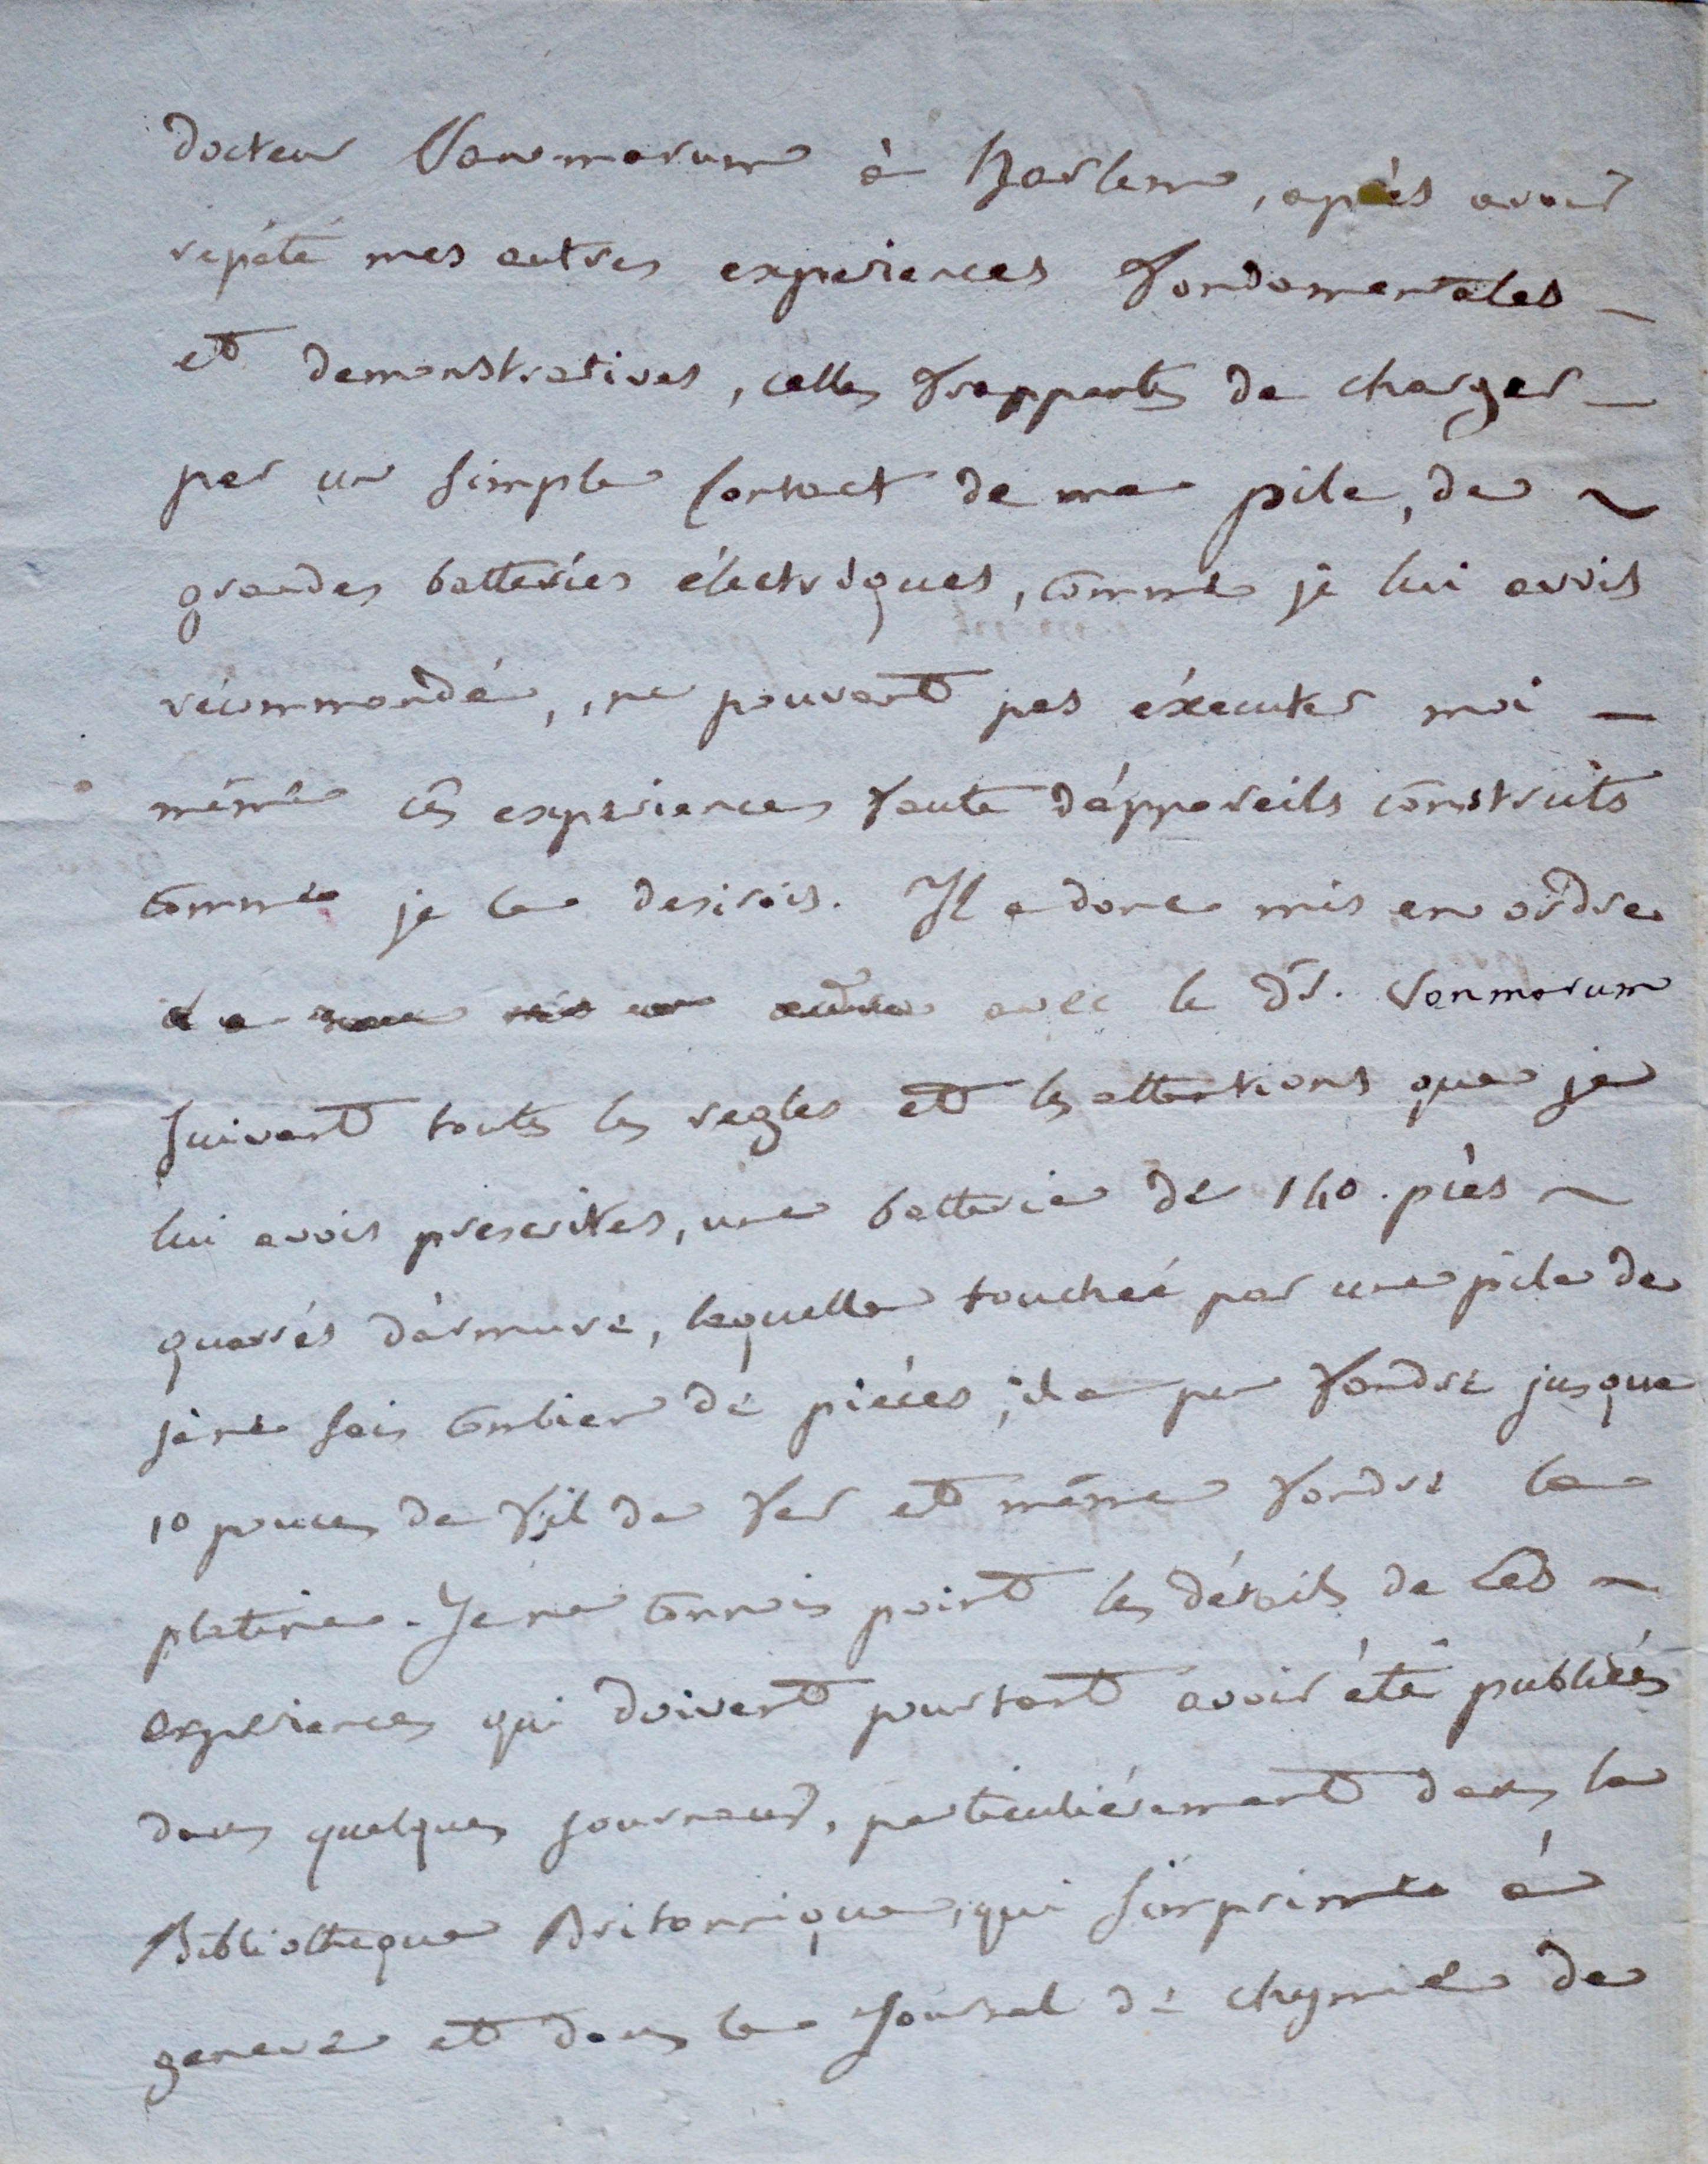 docteur Vanmarum à Harlem, après avoir
repété mes autres experiences fondamentales
et demonstratives, celles frappantes de charger
par un simple contact de ma pile, de
grandes batteries électriques, comme je lui avois
récommandé, ne pouvant pas éxecuter moi
même ces experiences faute d'appareils construits
comme je le desirois. Il a donc mis en ordre
avec le Dr. Vanmarum
suivant toutes les regles et les attentions que je
lui avois prescrites, une batterie de 140. piés
quarrés d'armure, laquelle touchée par une pile de
je ne sais combien de piéces, il a pu fondre jusque
10 pouces de fil de fer et même fondre la
platine. Je ne connois point les détails de ces
experiences qui doivent pourtant avoir été publiées
dans quelques journaux, particuliérement dans la
Bibliotheque Britannique, qui s'imprime à
geneve et dans le Journal de chymie de